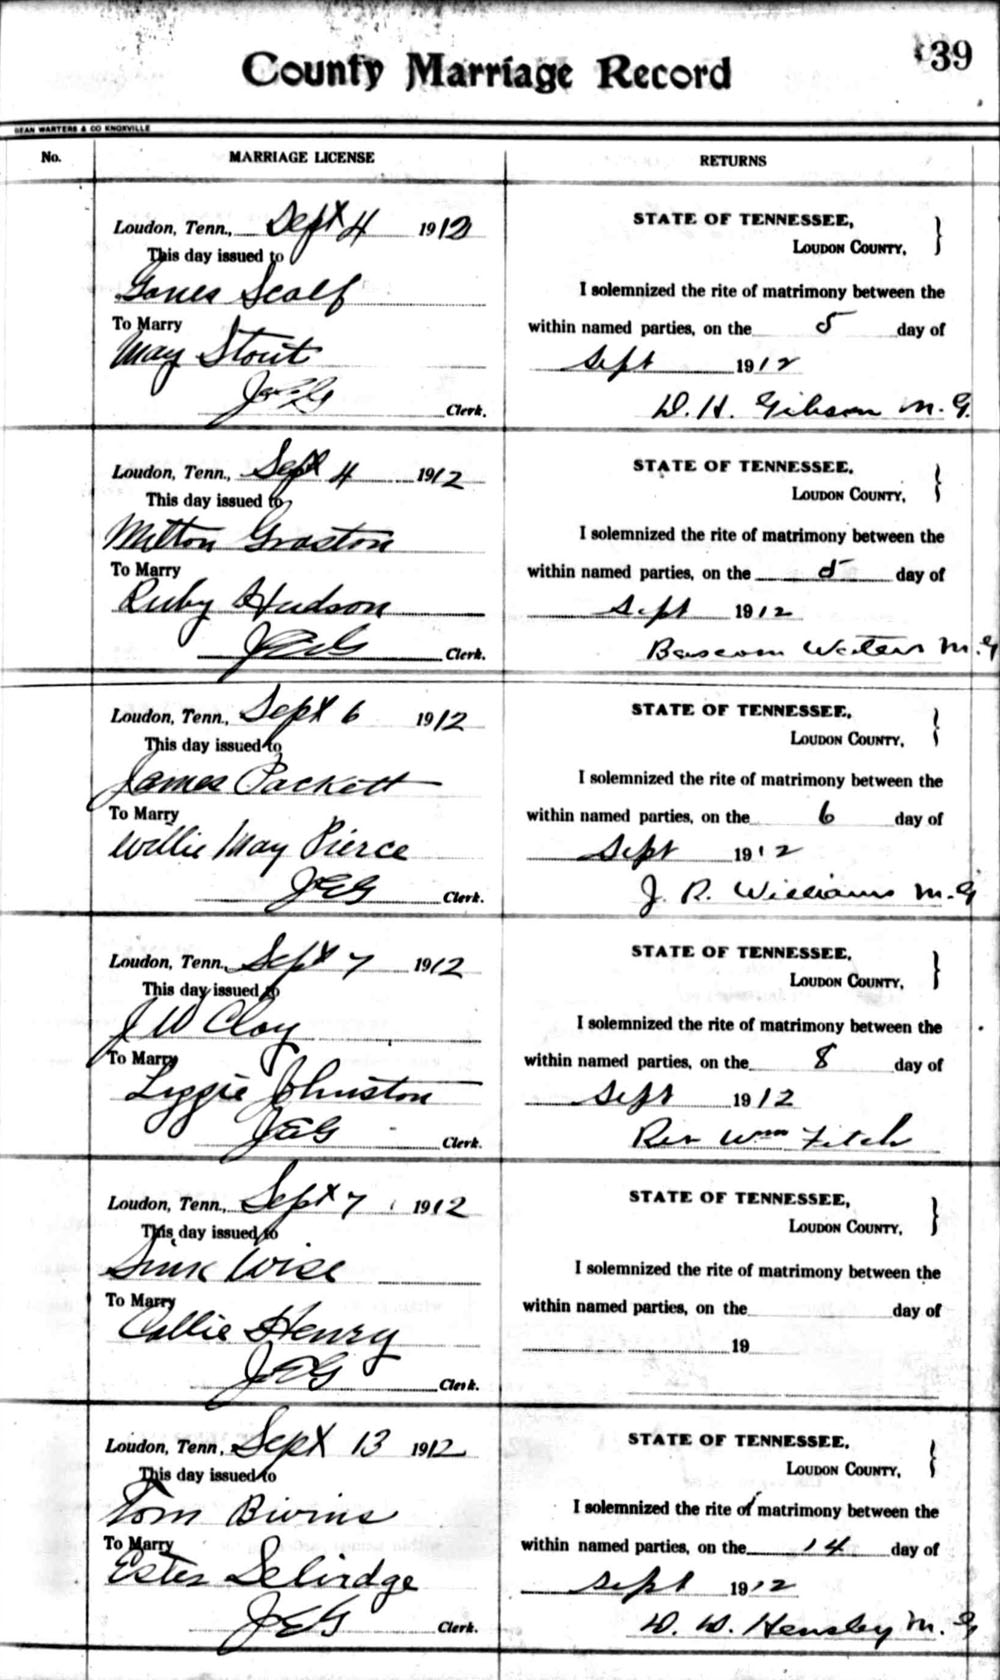 39
County Marriage Record
DEAN WARTERS & CO KNOXVILLE
No.
MARRIAGE LICENSE
RETURNS
Loudon, Tenn., Sept 4 1912
This day issued to
Scalf
To Marry
May Stout
Clerk.
STATE OF TENNESSEE,
LOUDON COUNTY,
I solemnized the rite of matrimony between the
within named parties, on the 5 day of
Sept 1912
D. H. Gibson M. G.
Loudon, Tenn., Sept 4 1912
This day issued to
Milton Graston
To Marry
Ruby Hudson
JEG Clerk.
STATE OF TENNESSEE,
LOUDON COUNTY,
I solemnized the rite of matrimony between the
within named parties, on the 5 day of
Sept 1912
Bascom Waters M. G
Loudon, Tenn., Sept 6 1912
This day issued to
James Packett
To Marry
Willie May Pierce
JEG Clerk.
STATE OF TENNESSEE,
LOUDON COUNTY,
I solemnized the rite of matrimony between the
within named parties, on the 6 day of
Sept 1912
J. R. Williams M. G
Loudon, Tenn., Sept 7 1912
This day issued to
J W Clay
To Marry
Lizzie Johnston
JEG Clerk.
STATE OF TENNESSEE,
LOUDON COUNTY,
I solemnized the rite of matrimony between the
within named parties, on the 8 day of
Sept 1912
Rev Wm Fitch
Loudon, Tenn., Sept 7 1912
This day issued to
Wise
To Marry
Callie Henry
JEG Clerk.
STATE OF TENNESSEE,
LOUDON COUNTY,
I solemnized the rite of matrimony between the
within named parties, on the day of
19
Loudon, Tenn., Sept 13 1912
This day issued to
Tom Bivins
To Marry
Ester Selvidge
JEG Clerk.
STATE OF TENNESSEE,
LOUDON COUNTY,
I solemnized the rite of matrimony between the
within named parties, on the 14 day of
Sept 1912
D. W. Hensley M. G